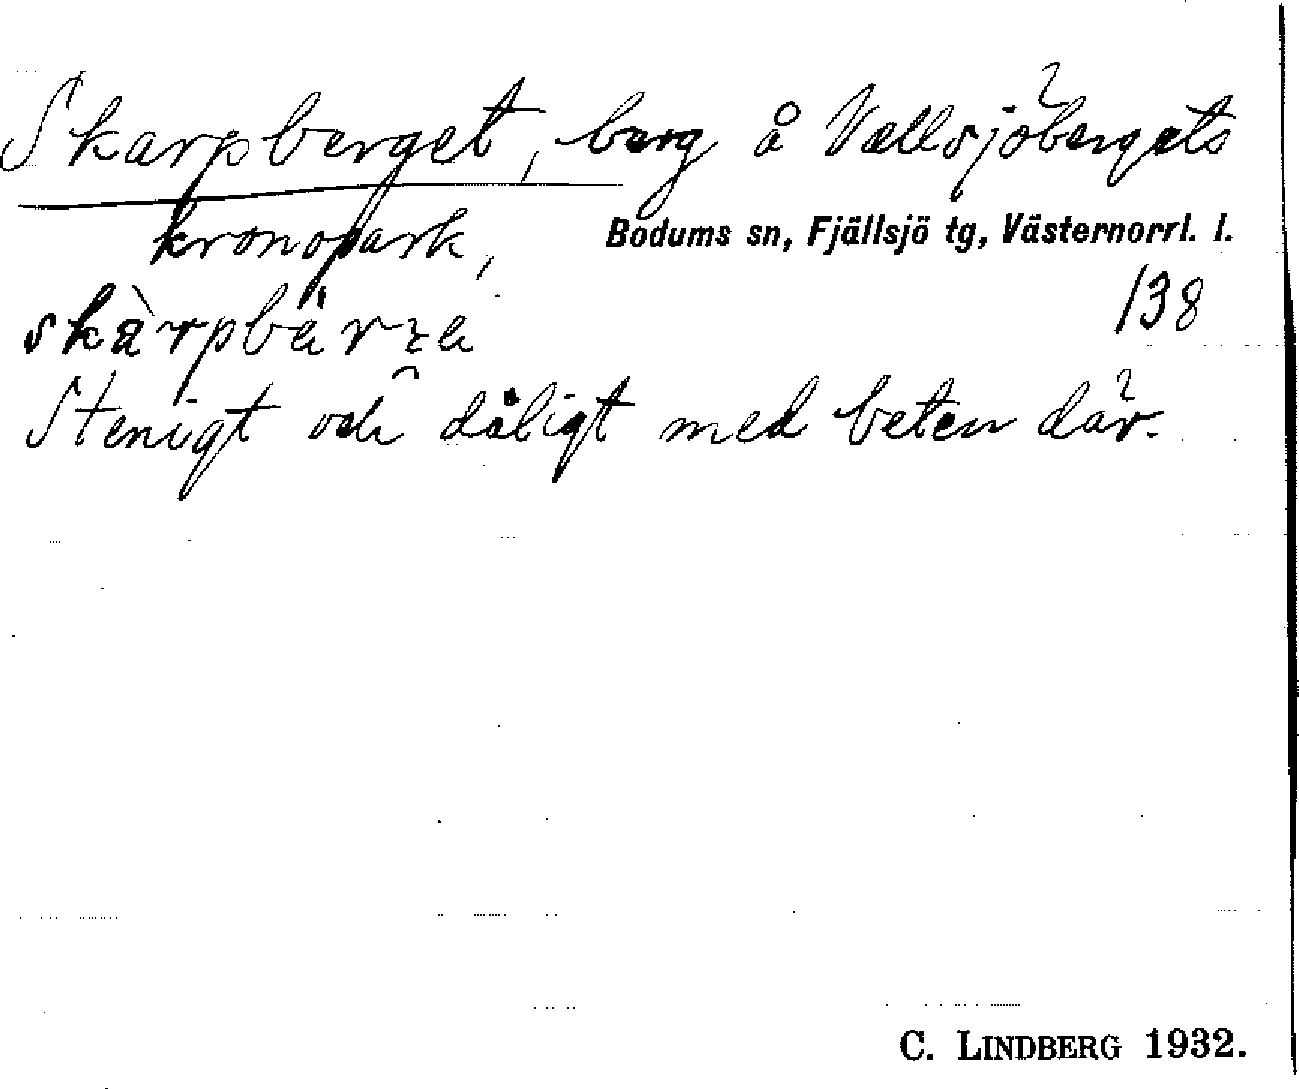 Skarpberget, berg å Vallsjöbergets
kronopark,
Bodums sn, Fjällsjö tg, Västernorrl. l.
138
Stenigt och dåligt med beten där.
C. LINDBERG 1932.